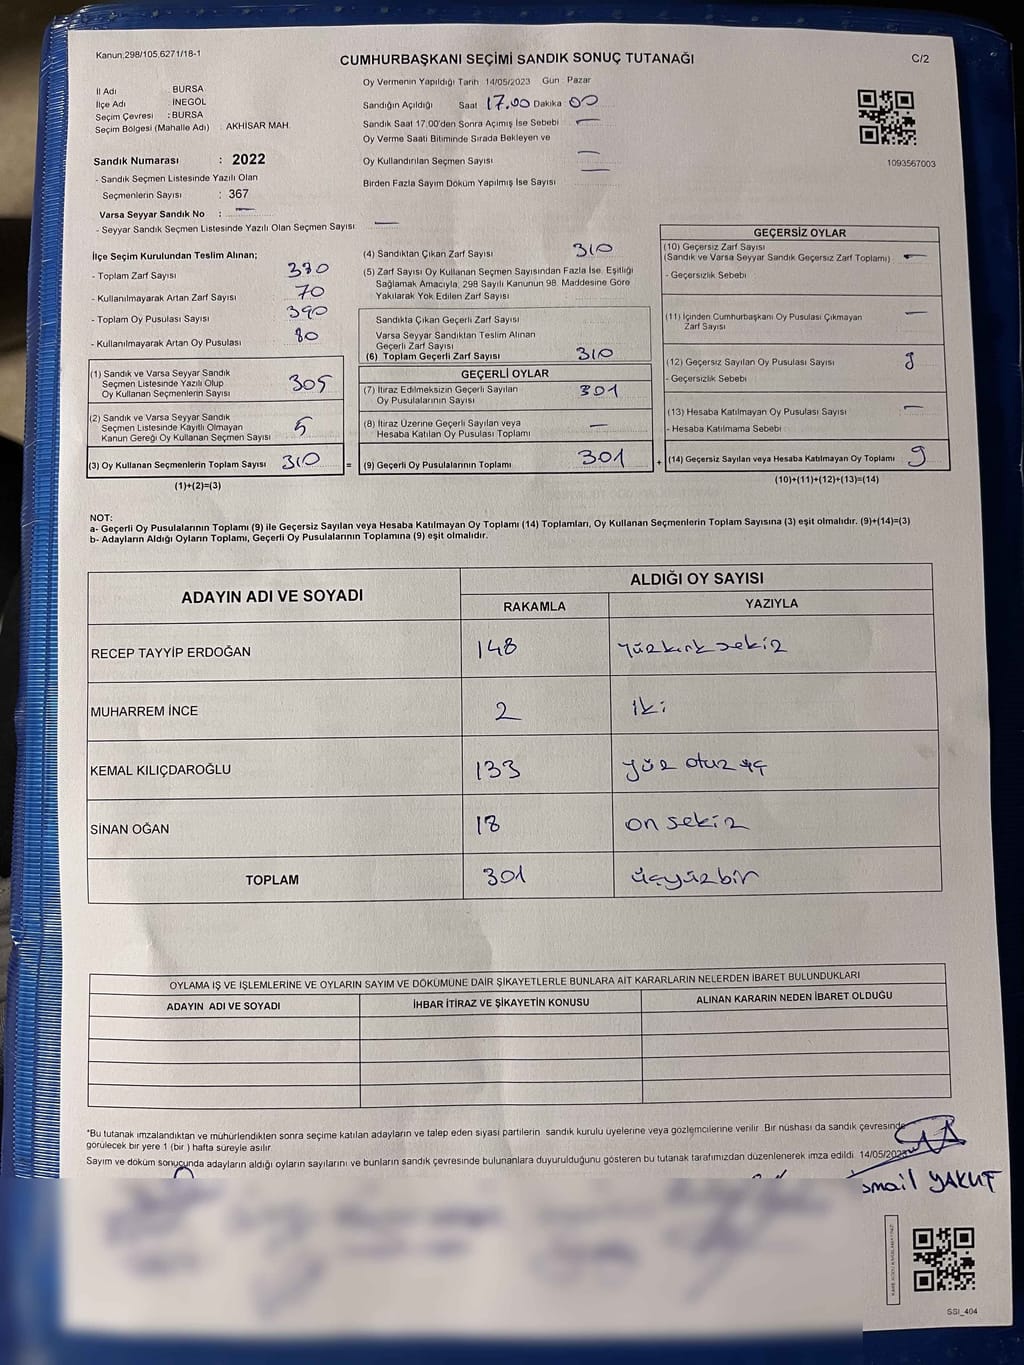 Kanun:298/105,6271/18-1
CUMHURBAŞKANI SEÇİMİ SANDIK SONUÇ TUTANAĞI
C/2
İl Adı : BURSA
İlçe Adı : İNEGÖL
Seçim Çevresi : BURSA
Seçim Bölgesi (Mahalle Adı) : AKHİSAR MAH.
Sandık Numarası : 2022
- Sandık Seçmen Listesinde Yazılı Olan
Seçmenlerin Sayısı : 367
Varsa Seyyar Sandık No : —
- Seyyar Sandık Seçmen Listesinde Yazılı Olan Seçmen Sayısı: —
Oy Vermenin Yapıldığı Tarih 14/05/2023 Gün : Pazar
Sandığın Açıldığı Saat 17.00 Dakika 00
Sandık Saat 17.00'den Sonra Açımış İse Sebebi —
Oy Verme Saati Bitiminde Sırada Bekleyen ve
Oy Kullandırılan Seçmen Sayısı —
Birden Fazla Sayım Döküm Yapılmış İse Sayısı —
1093567003
İlçe Seçim Kurulundan Teslim Alınan;
- Toplam Zarf Sayısı 370
- Kullanılmayarak Artan Zarf Sayısı 70
- Toplam Oy Pusulası Sayısı 390
- Kullanılmayarak Artan Oy Pusulası 80
(1) Sandık ve Varsa Seyyar Sandık
Seçmen Listesinde Yazılı Olup
Oy Kullanan Seçmenlerin Sayısı 305
(2) Sandık ve Varsa Seyyar Sandık
Seçmen Listesinde Kayıtlı Olmayan
Kanun Gereği Oy Kullanan Seçmen Sayısı 5
(3) Oy Kullanan Seçmenlerin Toplam Sayısı 310
(1)+(2)=(3)
(4) Sandıktan Çıkan Zarf Sayısı 310
(5) Zarf Sayısı Oy Kullanan Seçmen Sayısından Fazla İse, Eşitliği
Sağlamak Amacıyla, 298 Sayılı Kanunun 98. Maddesine Göre
Yakılarak Yok Edilen Zarf Sayısı
Sandıkta Çıkan Geçerli Zarf Sayısı
Varsa Seyyar Sandıktan Teslim Alınan
Geçerli Zarf Sayısı
(6) Toplam Geçerli Zarf Sayısı 310
GEÇERLİ OYLAR
(7) İtiraz Edilmeksizin Geçerli Sayılan
Oy Pusulalarının Sayısı 301
(8) İtiraz Üzerine Geçerli Sayılan veya
Hesaba Katılan Oy Pusulası Toplamı —
= (9) Geçerli Oy Pusulalarının Toplamı 301
GEÇERSİZ OYLAR
(10) Geçersiz Zarf Sayısı
(Sandık ve Varsa Seyyar Sandık Geçersiz Zarf Toplamı) —
- Geçersizlik Sebebi :
(11) İçinden Cumhurbaşkanı Oy Pusulası Çıkmayan
Zarf Sayısı —
(12) Geçersiz Sayılan Oy Pusulası Sayısı 9
- Geçersizlik Sebebi
(13) Hesaba Katılmayan Oy Pusulası Sayısı —
- Hesaba Katılmama Sebebi
+ (14) Geçersiz Sayılan veya Hesaba Katılmayan Oy Toplamı 9
(10)+(11)+(12)+(13)=(14)
NOT:
a- Geçerli Oy Pusulalarının Toplamı (9) ile Geçersiz Sayılan veya Hesaba Katılmayan Oy Toplamı (14) Toplamları, Oy Kullanan Seçmenlerin Toplam Sayısına (3) eşit olmalıdır. (9)+(14)=(3)
b- Adayların Aldığı Oyların Toplamı, Geçerli Oy Pusulalarının Toplamına (9) eşit olmalıdır.
ADAYIN ADI VE SOYADI
ALDIĞI OY SAYISI
RAKAMLA YAZIYLA
RECEP TAYYİP ERDOĞAN 148 yüzkırk sekiz
MUHARREM İNCE 2 iki
KEMAL KILIÇDAROĞLU 133 yüz otuz üç
SİNAN OĞAN 18 on sekiz
TOPLAM 301 üçyüzbir
OYLAMA İŞ VE İŞLEMLERİNE VE OYLARIN SAYIM VE DÖKÜMÜNE DAİR ŞİKAYETLERLE BUNLARA AİT KARARLARIN NELERDEN İBARET BULUNDUKLARI
ADAYIN ADI VE SOYADI İHBAR İTİRAZ VE ŞİKAYETİN KONUSU ALINAN KARARIN NEDEN İBARET OLDUĞU
*Bu tutanak imzalandıktan ve mühürlendikten sonra seçime katılan adayların ve talep eden siyasi partilerin sandık kurulu üyelerine veya gözlemcilerine verilir. Bir nüshası da sandık çevresinde
görülecek bir yere 1 (bir ) hafta süreyle asılır.
Sayım ve döküm sonucunda adayların aldığı oyların sayılarını ve bunların sandık çevresinde bulunanlara duyurulduğunu gösteren bu tutanak tarafımızdan düzenlenerek imza edildi 14/05/2023
İsmail YAKUT
SSI_404